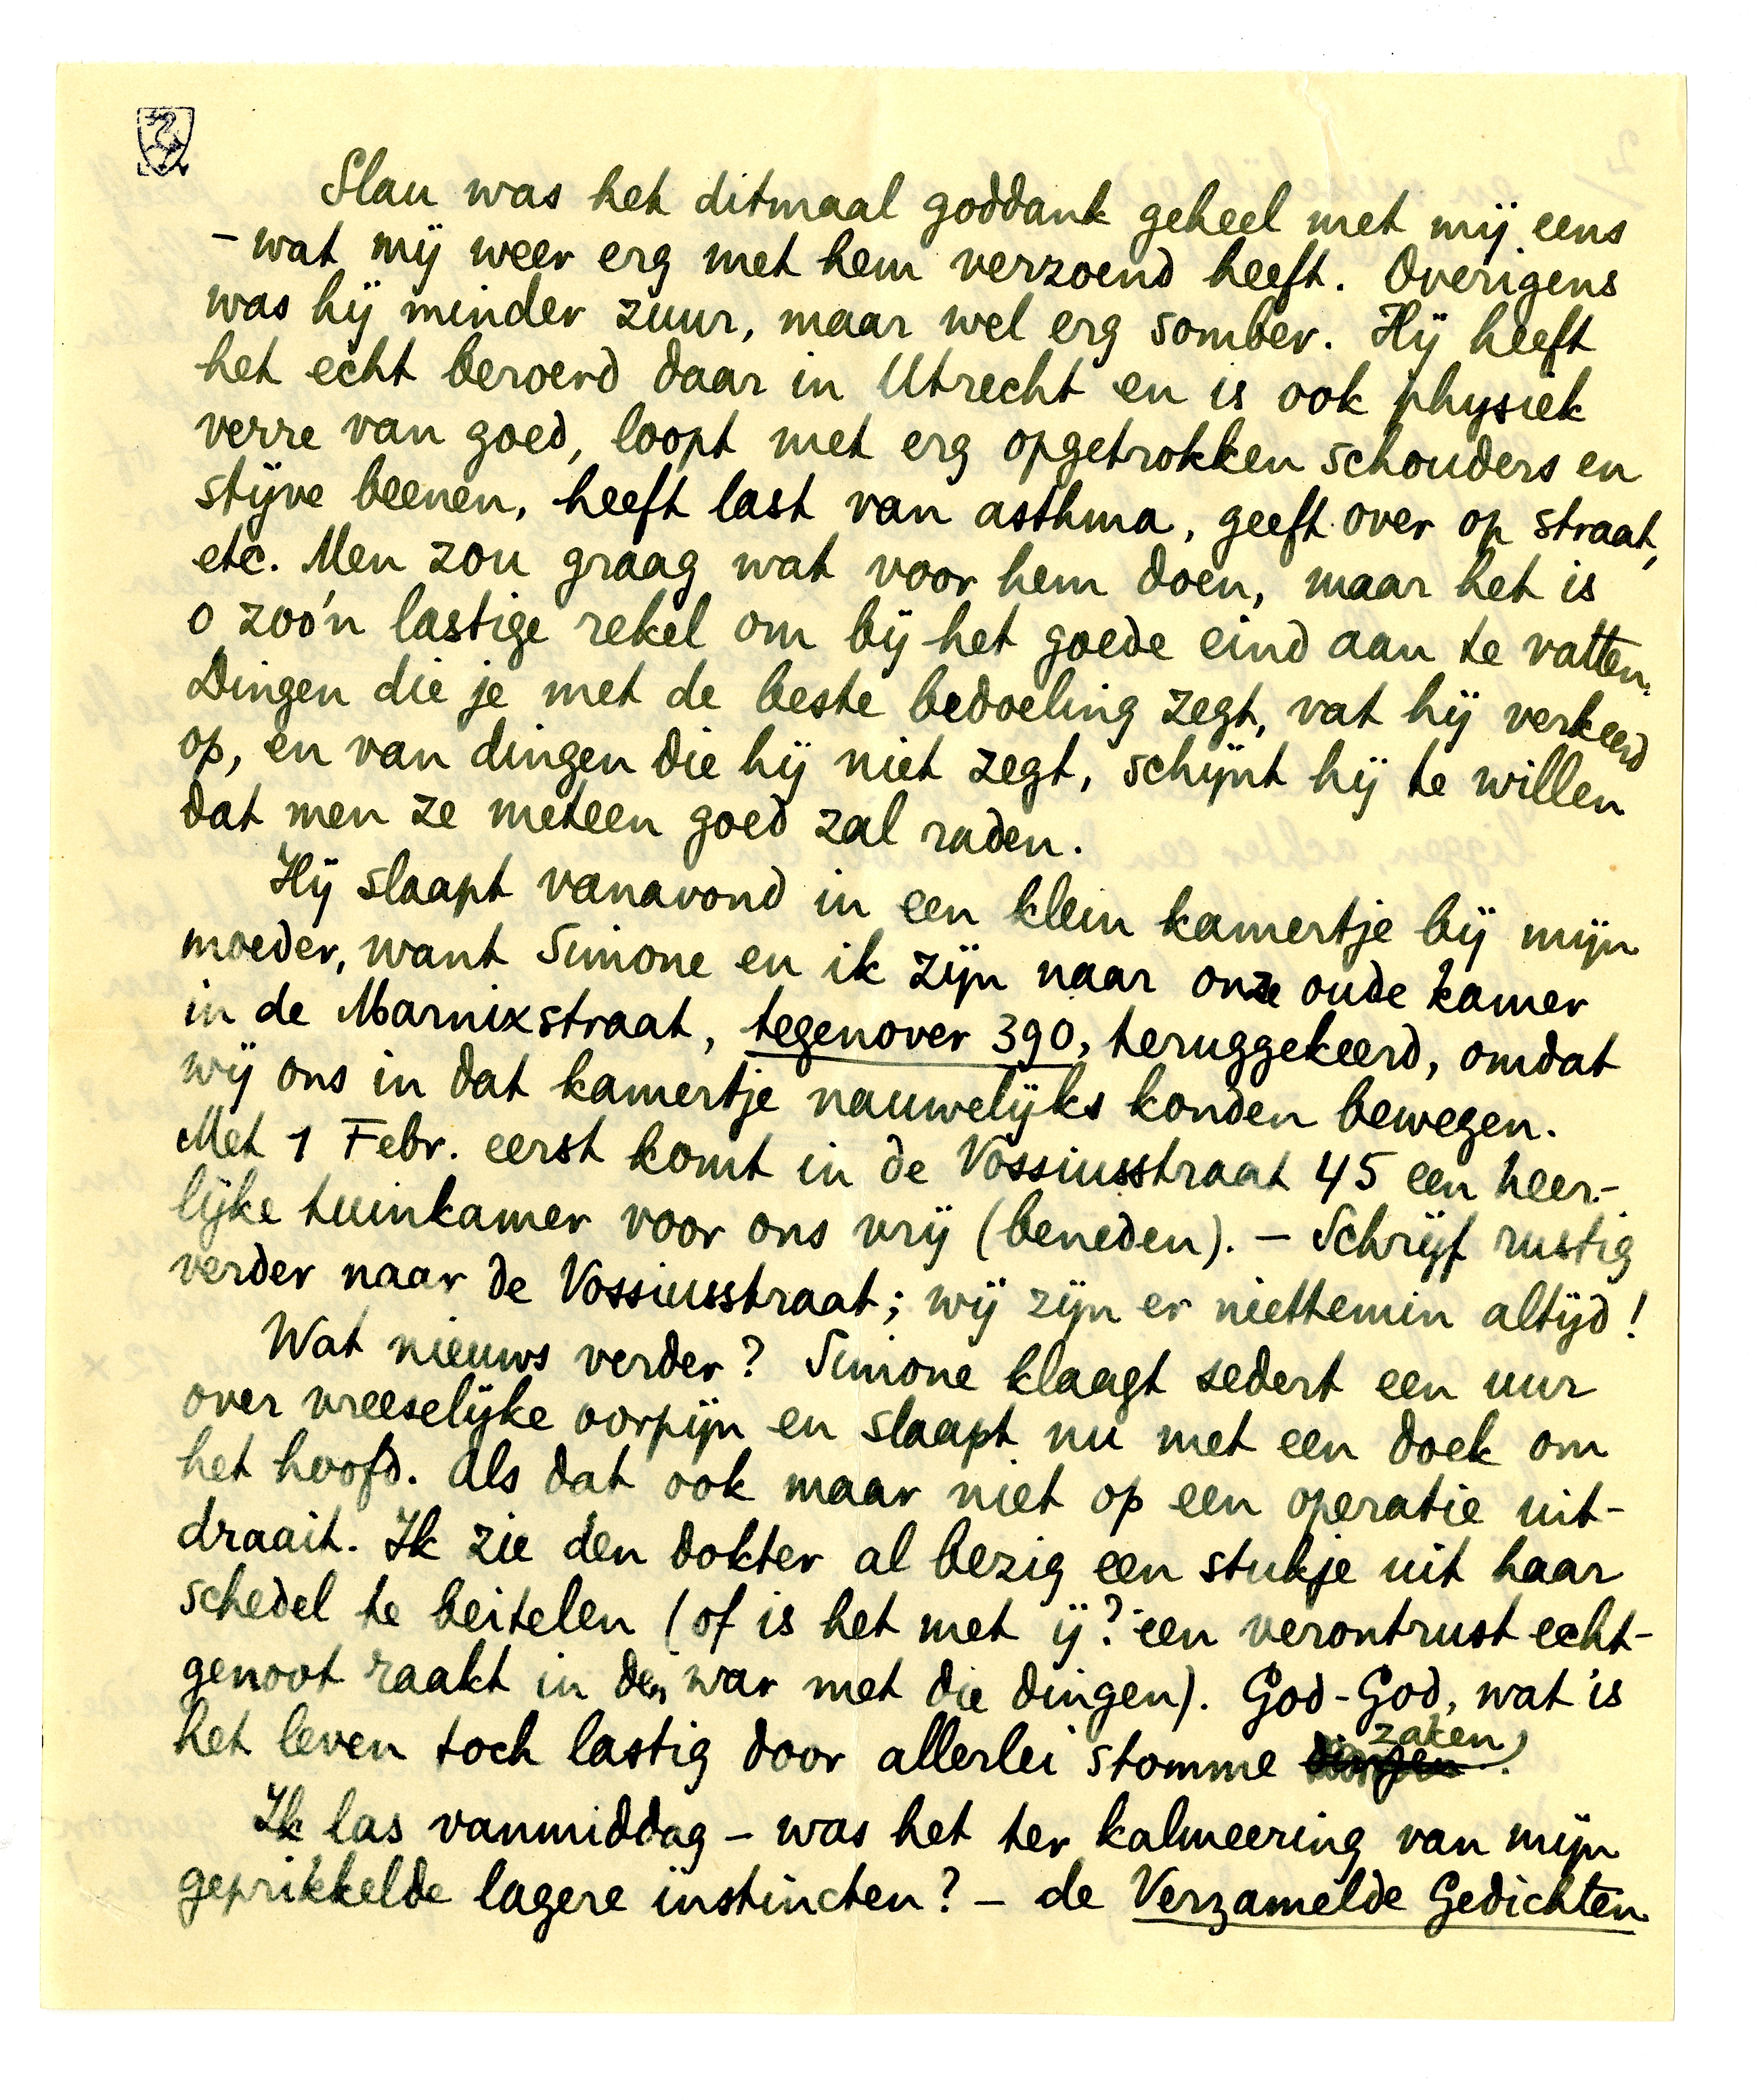 Slau was het ditmaal goddank geheel met mij eens
– wat mij weer erg met hem verzoend heeft. Overigens
was hij minder zuur, maar wel erg somber. Hij heeft
het echt beroerd daar in Utrecht en is ook physiek
verre van goed, loopt met erg opgetrokken schouders en
stijve beenen, heeft last van asthma, geeft over op straat,
etc. Men zou graag wat voor hem doen, maar het is
o zoo'n lastige rekel om bij het goede eind aan te vatten.
Dingen die je met de beste bedoeling zegt, vat hij verkeerd
op, en van dingen die hij niet zegt, schijnt hij te willen
dat men ze meteen goed zal raden.
Hij slaapt vanavond in een klein kamertje bij mijn
moeder, want Simone en ik zijn naar onze oude kamer
in de Marnixstraat, tegenover 390, teruggekeerd, omdat
wij ons in dat kamertje nauwelijks konden bewegen.
Met 1 Febr. eerst komt in de Vossiusstraat 45 een heer-
lijke tuinkamer voor ons vrij (beneden). – Schrijf rustig
verder naar de Vossiusstraat; wij zijn er niettemin altijd!
Wat nieuws verder? Simone klaagt sedert een uur
over vreeselijke oorpijn en slaapt nu met een doek om
het hoofd. Als dat ook maar niet op een operatie uit-
draait. Ik zie den dokter al bezig een stukje uit haar
schedel te beitelen (of is het met ij? een verontrust echt-
genoot raakt in den war met die dingen). God-God, wat is
het leven toch lastig door allerlei stomme dingen zaken.
Ik las vanmiddag – was het ter kalmeering van mijn
geprikkelde lagere instincten? – de Verzamelde Gedichten